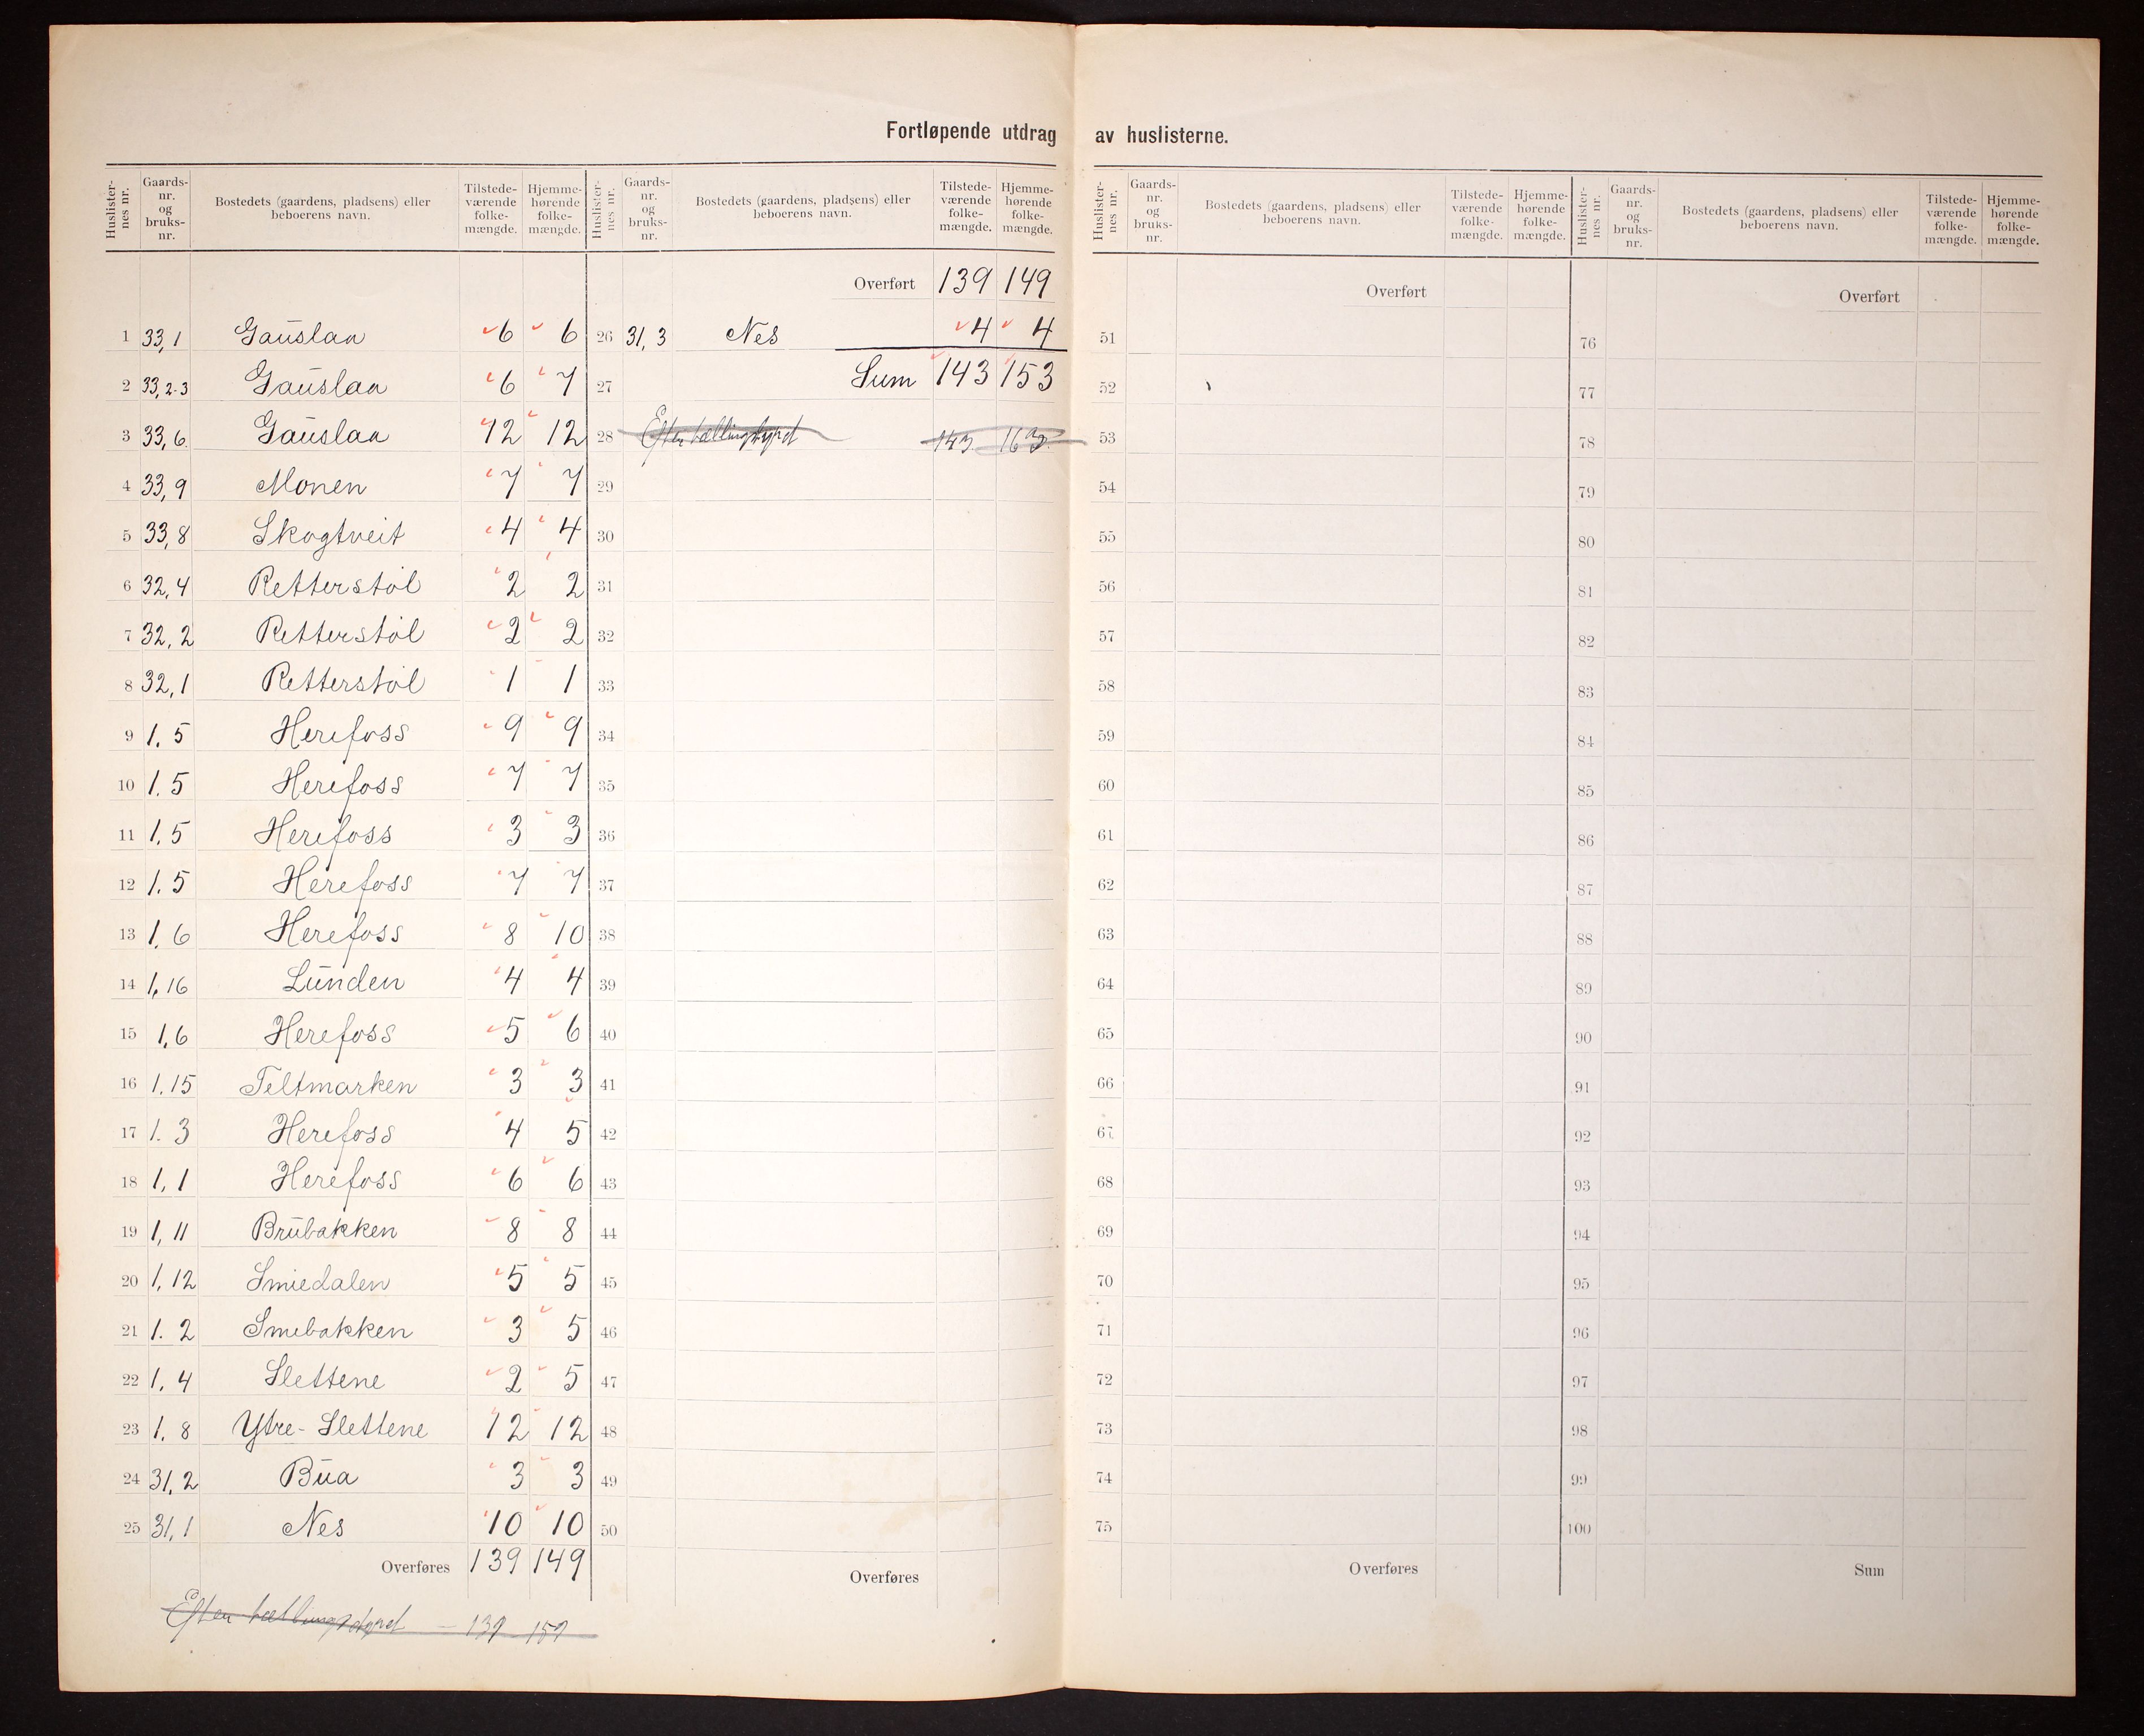 Fortløpende utdrag av huslisterne.
Huslisternes nr. Gaards-nr. og bruks-nr. Bostedets (gaardens, pladsens) eller beboerens navn. Tilstedeværende folkemængde. Hjemmehørende folkemængde.
1 33,1 Gauslaa 6 6
2 33,2-3 Gauslaa 6 7
3 33,6. Gauslaa 12 12
4 33,9 Monen 7 7
5 33,8 Skogtveit 4 4
6 32,4 Retterstøl 2 2
7 32,2 Retterstøl 2 2
8 32,1 Retterstøl 1 1
9 1.5 Herefoss 9 9
10 1.5 Herefoss 7 7
11 1,5 Herefoss 3 3
12 1.5 Herefoss 7 7
13 1.6 Herefoss 8 10
14 1,16 Lunden 4 4
15 1,6 Herefoss 5 6
16 1.15 Teltmarken 3 3
17 1.3 Herefoss 4 5
18 1,1 Herefoss 6 6
19 1,11 Brubakken 8 8
20 1,12 Smiedalen 5 5
21 1.2 Smebakken 3 5
22 1,4 Slettene 2 5
23 1.8 Ytre-Slettene 12 12
24 31,2 Bua 3 3
25 31,1 Nes 10 10
Overføres 139 149
Efter tællingsdøgnet
Huslisternes nr. Gaards-nr. og bruks-nr. Bostedets (gaardens, pladsens) eller beboerens navn. Tilstedeværende folkemængde. Hjemmehørende folkemængde.
Overført 139 149
26 31,3 Nes 4 4
27 Sum 143 153
28 Efter tællingsdøgnet 143 163
29
30
31
32
33
34
35
36
37
38
39
40
41
42
43
44
45
46
47
48
49
50
Overføres
Huslisternes nr. Gaards-nr. og bruks-nr. Bostedets (gaardens, pladsens) eller beboerens navn. Tilstedeværende folkemængde. Hjemmehørende folkemængde.
Overført
51
52
53
54
55
56
57
58
59
60
61
62
63
64
65
66
67
68
69
70
71
72
73
74
75
Overføres
Huslisternes nr. Gaards-nr. og bruks-nr. Bostedets (gaardens, pladsens) eller beboerens navn. Tilstedeværende folkemængde. Hjemmehørende folkemængde.
Overført
76
77
78
79
80
81
82
83
84
85
86
87
88
89
90
91
92
93
94
95
96
97
98
99
100
Sum